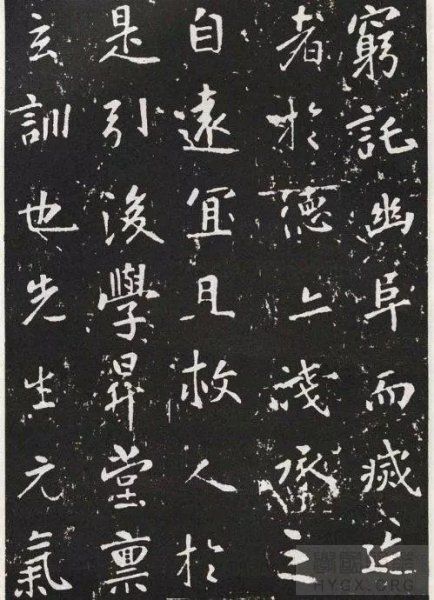 窮託幽阜而滅迹
者於德淺承之
自遠宜且救人於
是引後學昇堂稟
玄訓也先生元氣
HYGX.ORG